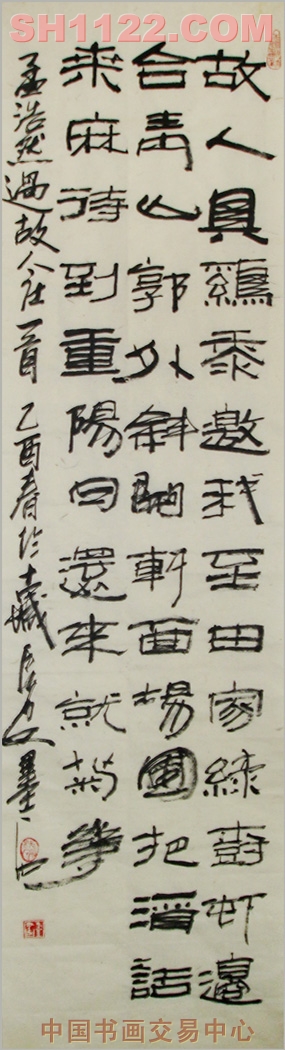 SH1122.COM
故人具鷄黍邀我至田家綠樹邨邊
合青山郭外斜開軒面楊圃把酒話
桑麻待到重陽日還來就菊華
孟浩然過故人庄一首 乙酉春於土城 墨
中国书画交易中心